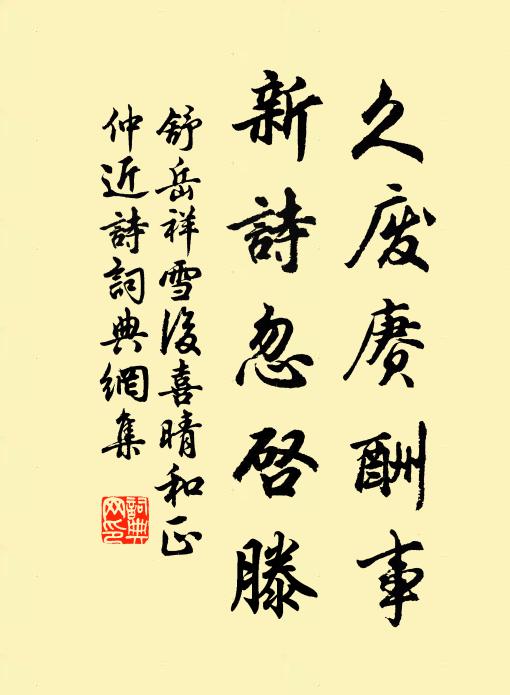 久废赓酬事
新詩忽启滕
舒岳祥雪後喜晴和正
仲近詩詞典網集
詞典
网印